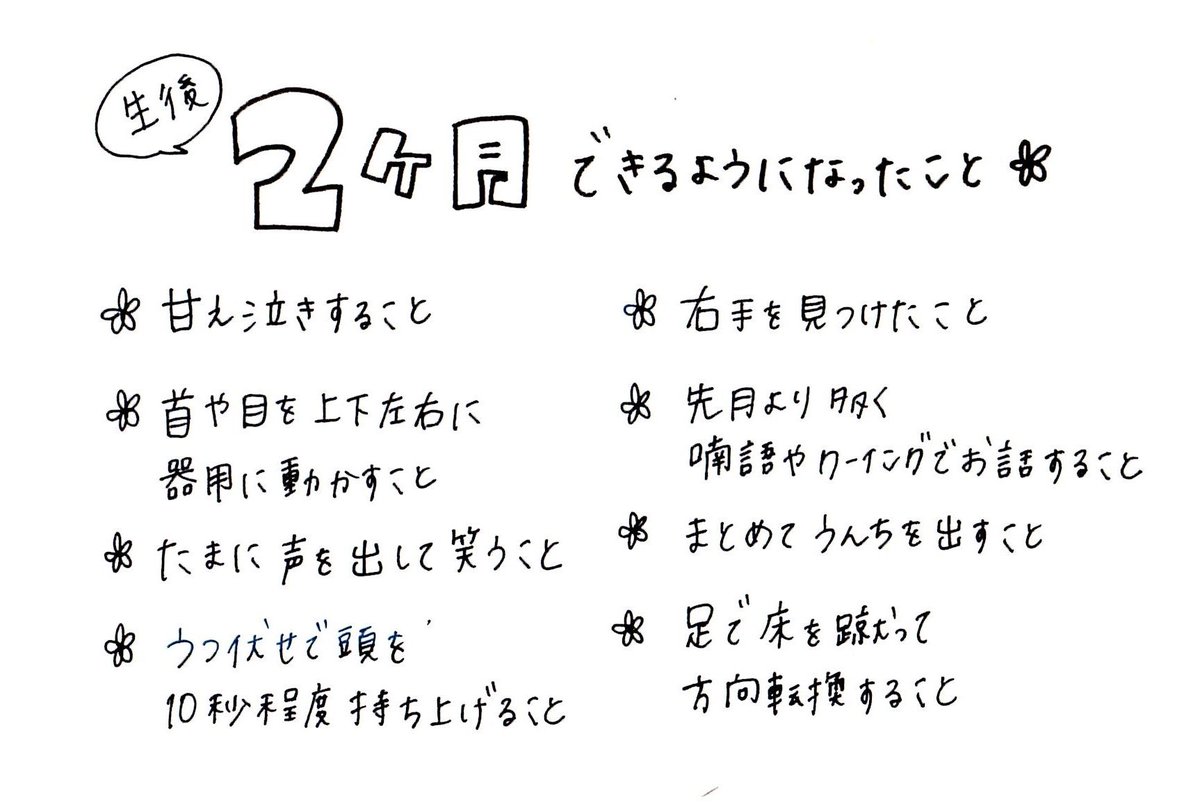 生後
2ヶ月 できるようになったこと
甘え泣きすること
首や目を上下左右に
器用に動かすこと
たまに声を出して笑うこと
うつ伏せで頭を
10秒程度持ち上げること
右手を見つけたこと
先月より多く
喃語やクーイングでお話すること
まとめてうんちを出すこと
足で床を蹴って
方向転換すること